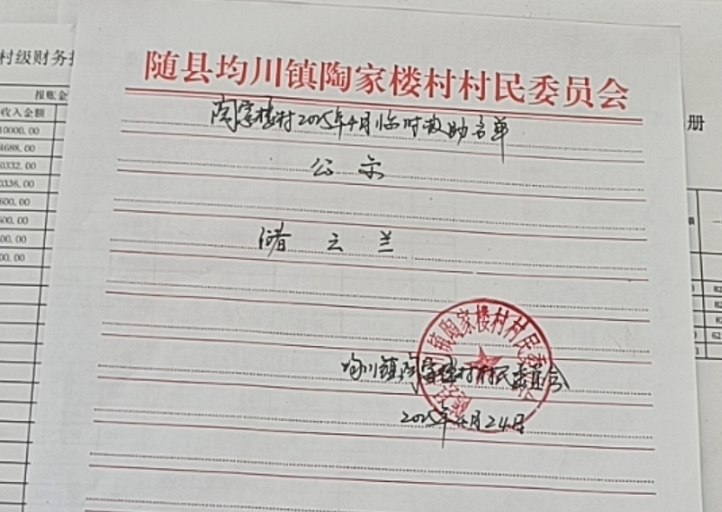 村级财务
报账金
收入金额
10000.00
600.00
00.00
00.00
册
随县均川镇陶家楼村村民委员会
陶家楼村2025年4月临时救助名单
公示
储云兰
均川镇陶家楼村村民委员会
2025年4月24日
镇陶家楼村村民委